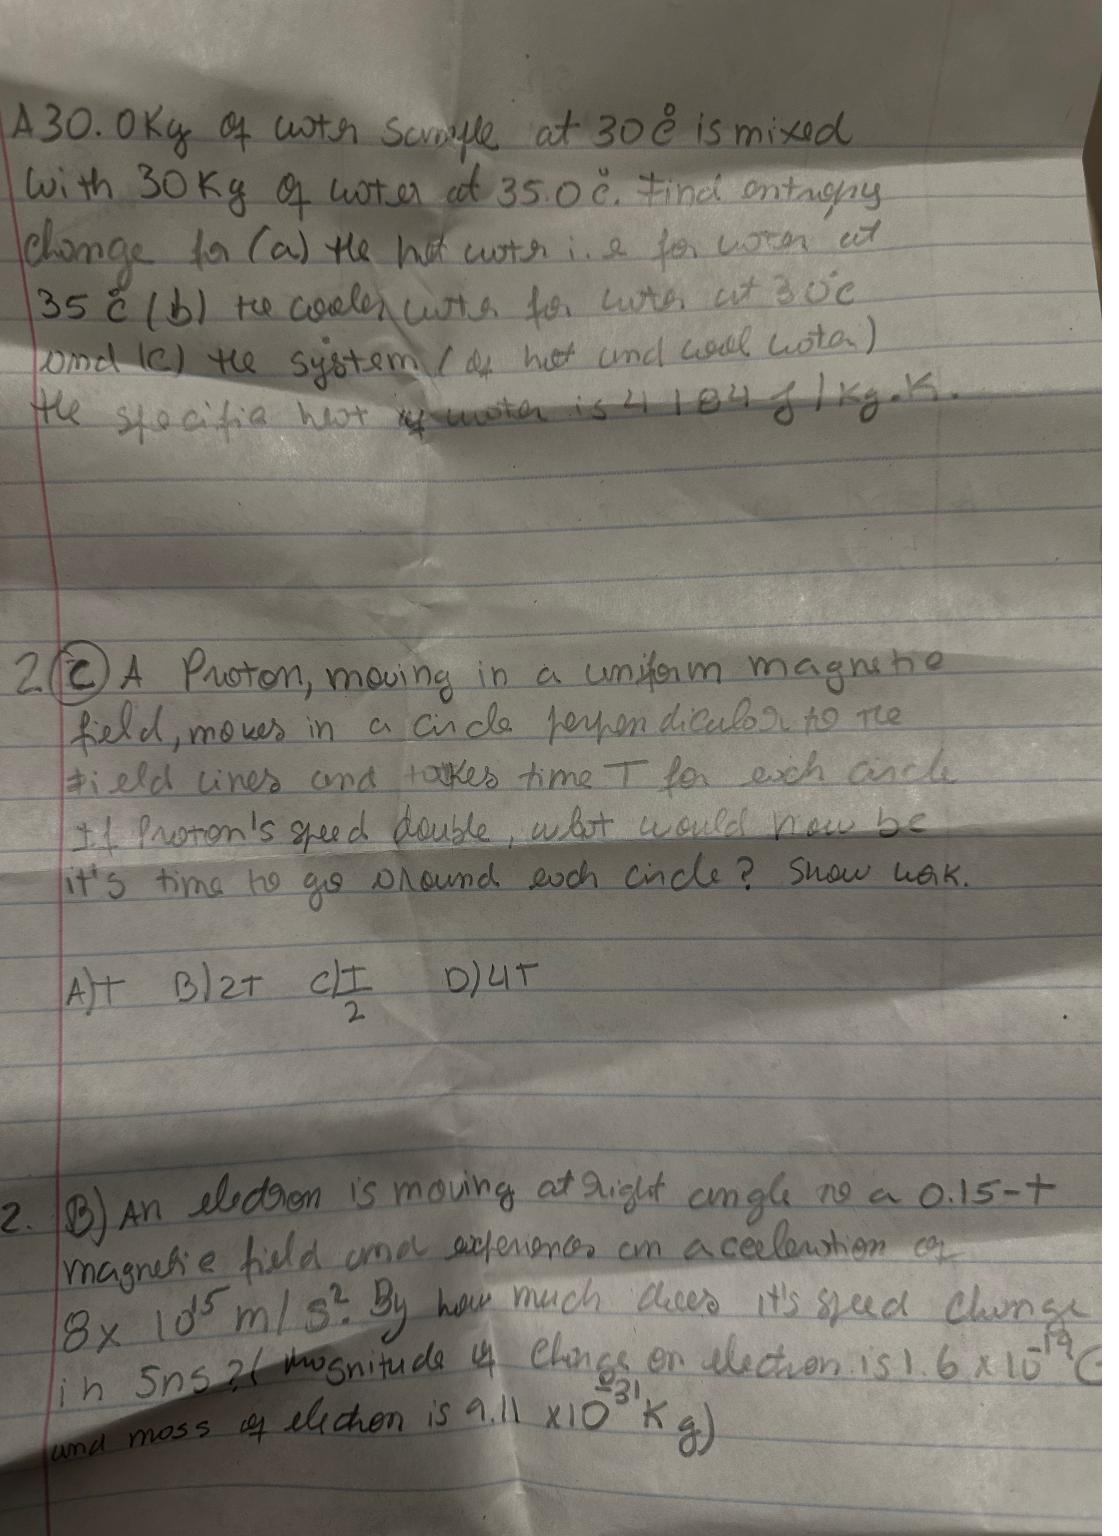 A 30.0Kg of water sample at 30°C is mixed
with 30Kg of water at 35.0°C. Find entropy
change for (a) the hot water i.e for water at
35°C (b) the cooler water for water at 30°C
and (c) the system (of hot and cool water)
the specific heat of water is 4184 J/Kg.K.
2. C) A Proton, moving in a uniform magnetic
field, moves in a circle perpendicular to the
field lines and takes time T for each circle
If Proton's speed double, what would now be
it's time to go around each circle? Show work.
A) T B) 2T C) T/2 D) 4T
2. B) An electron is moving at right angle to a 0.15-T
magnetic field and experiences an acceleration of
8x 10^15 m/s². By how much does it's speed change
in 5ns? (magnitude of charge on electron is 1.6 x 10^-19 C
and mass of electron is 9.11 x10^-31 Kg)